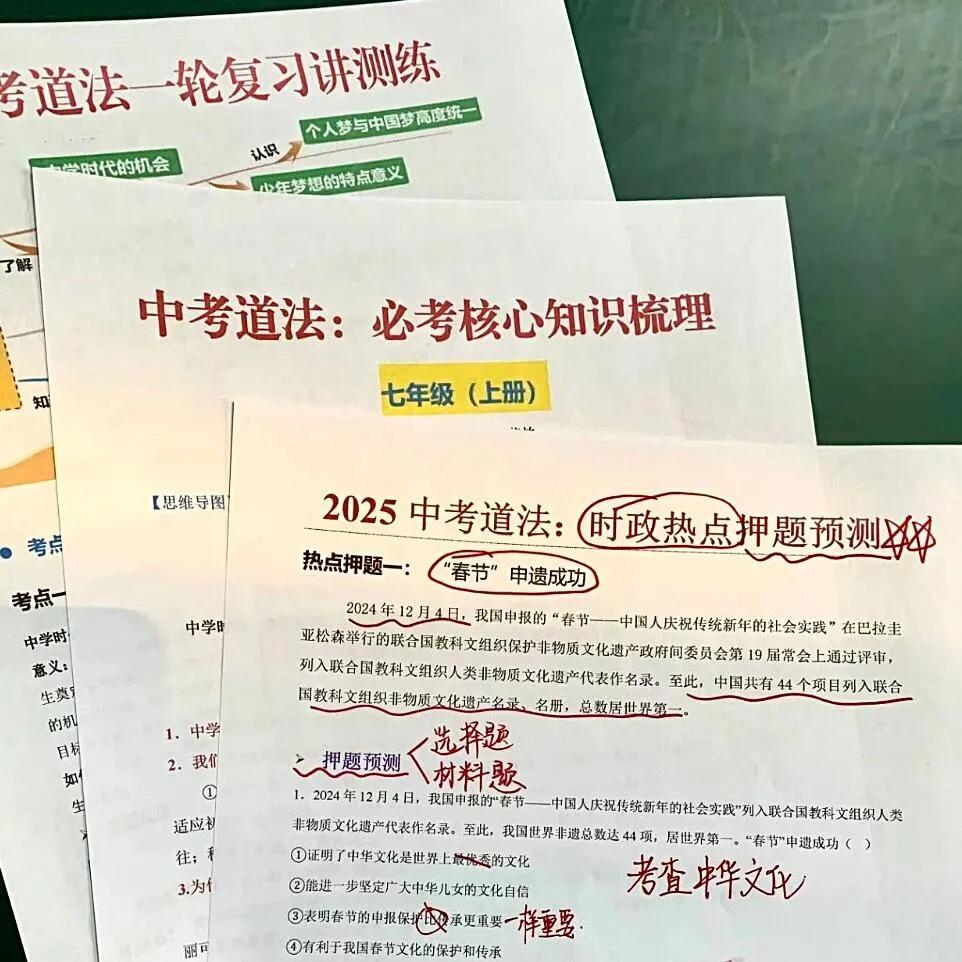 考道法一轮复习讲测练
个人梦与中国梦高度统一
认识
中学时代的机会
少年梦想的特点意义
了解
知
考点
考点一
中学时
意义：
生奠定
的机
目标
如
生
中考道法：必考核心知识梳理
七年级（上册）
【思维导图
中学时
1. 中学
2. 我们
①
适应初
往；
3.为什
丽可
2025 中考道法：时政热点押题预测☆☆
热点押题一：“春节”申遗成功
2024 年 12 月 4 日，我国申报的“春节——中国人庆祝传统新年的社会实践”在巴拉圭
亚松森举行的联合国教科文组织保护非物质文化遗产政府间委员会第 19 届常会上通过评审，
列入联合国教科文组织人类非物质文化遗产代表作名录。至此，中国共有 44 个项目列入联合
国教科文组织非物质文化遗产名录、名册，总数居世界第一。
选择题
➢ 押题预测
材料题
1．2024 年 12 月 4 日，我国申报的“春节——中国人庆祝传统新年的社会实践”列入联合国教科文组织人类
非物质文化遗产代表作名录。至此，我国世界非遗总数达 44 项，居世界第一。“春节”申遗成功（ ）
①证明了中华文化是世界上最优秀的文化
②能进一步坚定广大中华儿女的文化自信
考查中华文化
③表明春节的申报保护比传承更重要 一样重要.
④有利于我国春节文化的保护和传承